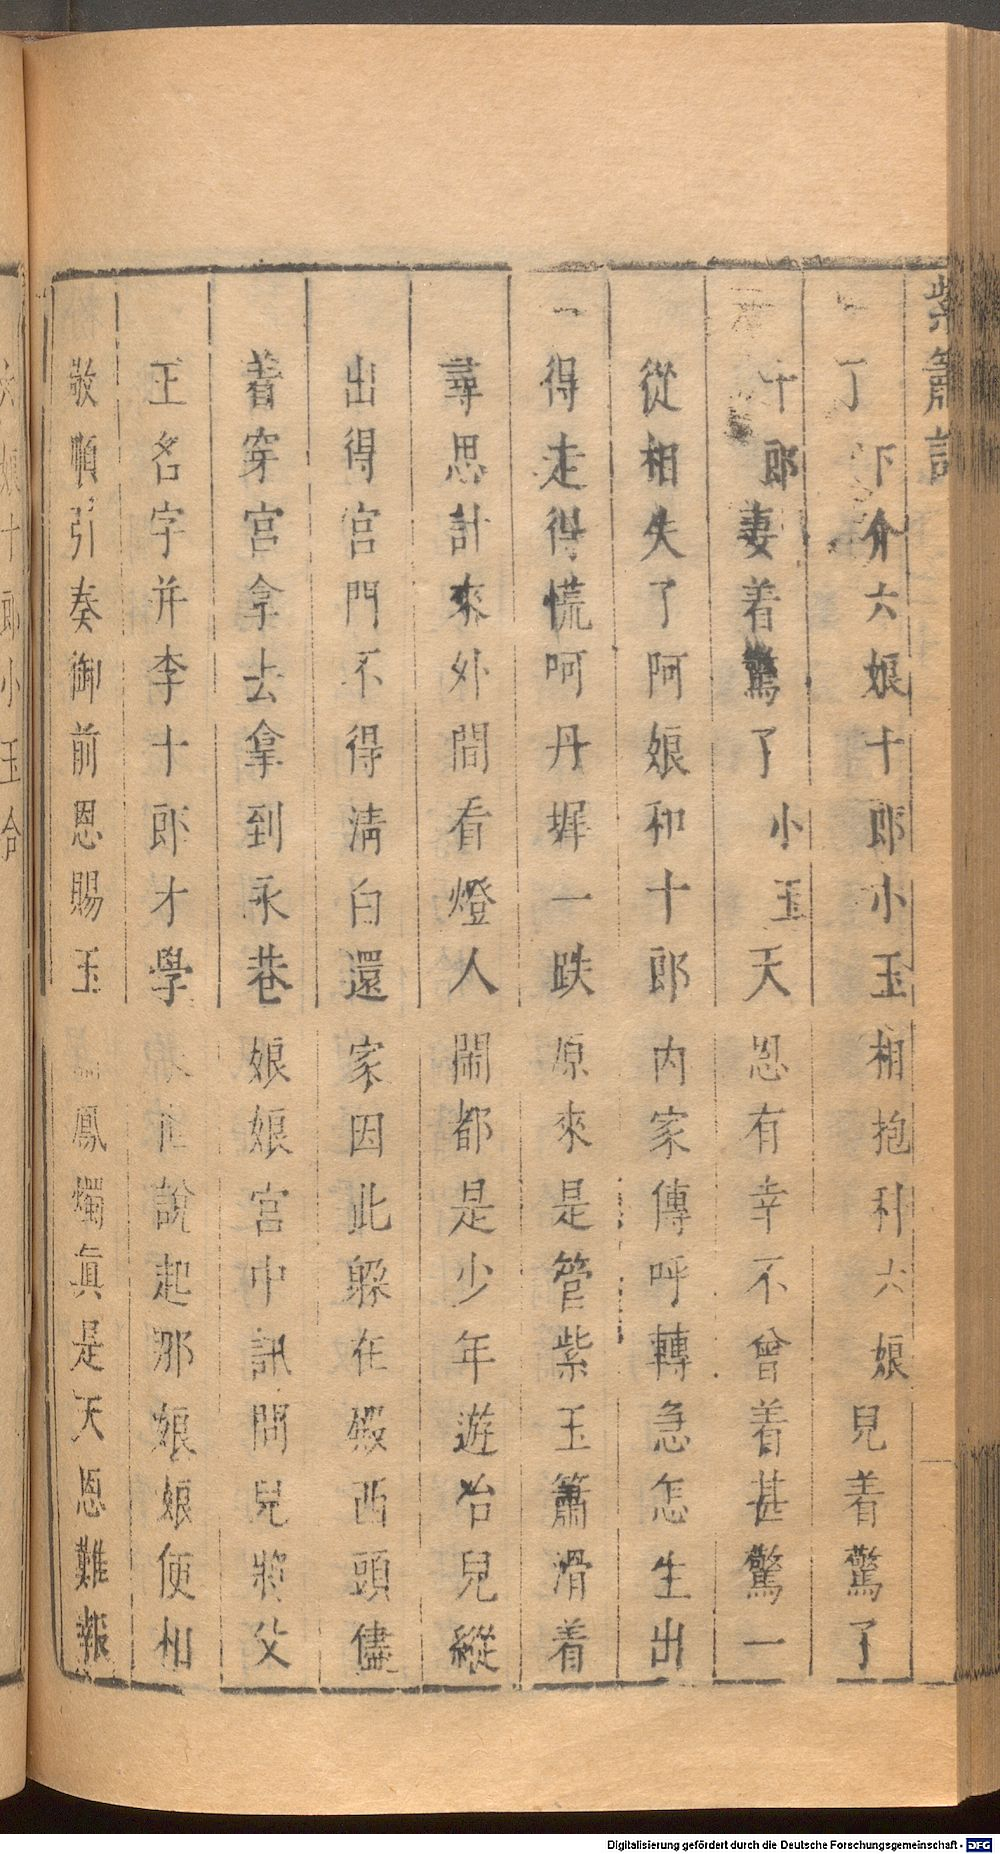 紫簫記
了 下介六娘十郎小玉相抱科六娘兒着驚了
十郎妻着驚了小玉天恩有幸不曾着甚驚一
從相失了阿娘和十郎内家傳呼轉急怎生出
得走得慌呵丹墀一跌原來是管紫玉簫滑着
尋思計來外間看燈人鬧都是少年遊冶兒縱
出得宮門不得清白還家因此躲在殿西頭儘
着穿宮拿去拿到永巷娘娘宮中訊問兒將父
王名字并李十郎才學說起那娘娘便相
敬順引奏御前恩賜玉鳳燭眞是天恩難報
娘十郎小玉合
Digitalisierung gefördert durch die Deutsche Forschungsgemeinschaft - DFG